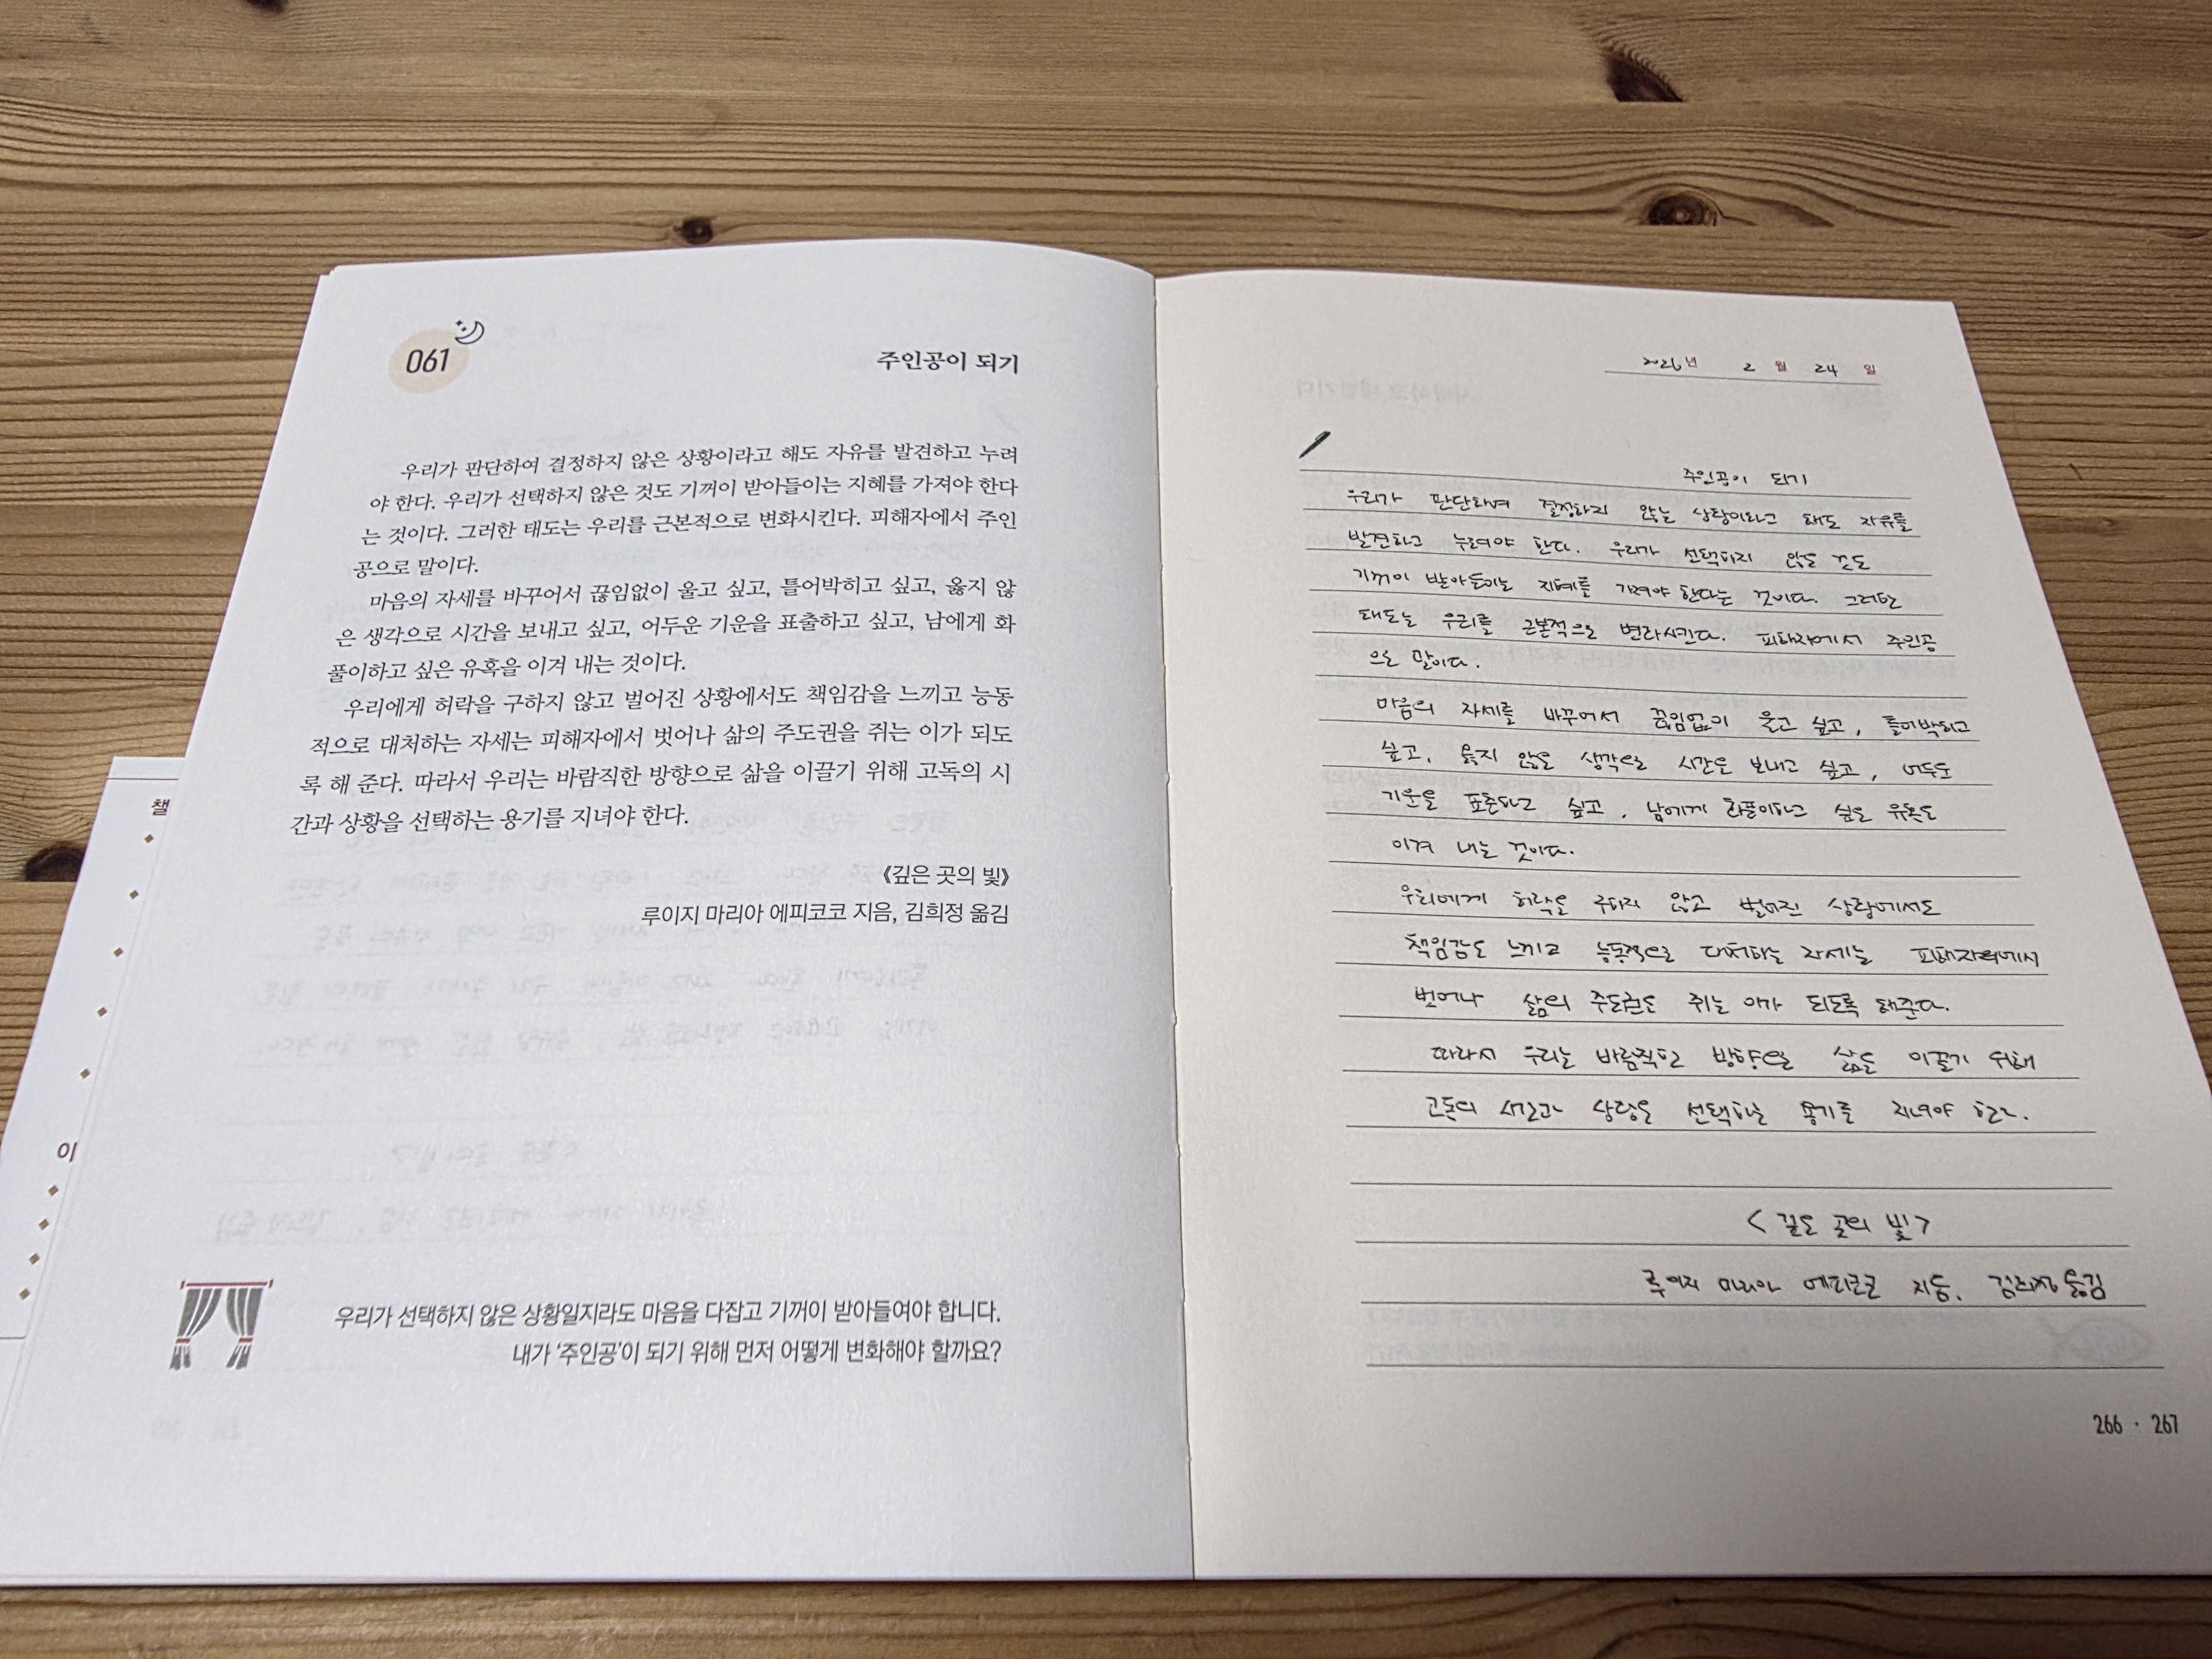 061
주인공이 되기
우리가 판단하여 결정하지 않은 상황이라고 해도 자유를 발견하고 누려
야 한다. 우리가 선택하지 않은 것도 기꺼이 받아들이는 지혜를 가져야 한다
는 것이다. 그러한 태도는 우리를 근본적으로 변화시킨다. 피해자에서 주인
공으로 말이다.
마음의 자세를 바꾸어서 끊임없이 울고 싶고, 틀어박히고 싶고, 옳지 않
은 생각으로 시간을 보내고 싶고, 어두운 기운을 표출하고 싶고, 남에게 화
풀이하고 싶은 유혹을 이겨 내는 것이다.
우리에게 허락을 구하지 않고 벌어진 상황에서도 책임감을 느끼고 능동
적으로 대처하는 자세는 피해자에서 벗어나 삶의 주도권을 쥐는 이가 되도
록 해 준다. 따라서 우리는 바람직한 방향으로 삶을 이끌기 위해 고독의 시
간과 상황을 선택하는 용기를 지녀야 한다.
《깊은 곳의 빛》
루이지 마리아 에피코코 지음, 김희정 옮김
우리가 선택하지 않은 상황일지라도 마음을 다잡고 기꺼이 받아들여야 합니다.
내가 '주인공'이 되기 위해 먼저 어떻게 변화해야 할까요?
챌
이
2026년 2월 24일
주인공이 되기
우리가 판단하여 결정하지 않는 상황이라고 해도 자유를
발견하고 누려야 한다. 우리가 선택하지 않은 것도
기꺼이 받아들이는 지혜를 가져야 한다는 것이다. 그러한
태도는 우리를 근본적으로 변화시킨다. 피해자에서 주인공
으로 말이다.
마음의 자세를 바꾸어서 끊임없이 울고 싶고, 틀어박히고
싶고, 옳지 않은 생각으로 시간을 보내고 싶고, 어두운
기운을 표출하고 싶고, 남에게 화풀이하고 싶은 유혹을
이겨 내는 것이다.
우리에게 허락을 구하지 않고 벌어진 상황에서도
책임감을 느끼고 능동적으로 대처하는 자세는
벗어나 삶의 주도권을 쥐는 이가 되도록 해준다.
따라서 우리는 바람직한 방향으로 삶을 이끌기 위해
고독의 시간과 상황을 선택하는 용기를 지녀야 한다.
<깊은 곳의 빛>
루이지 마리아 에피코코 지음, 김희정 옮김
266 · 267